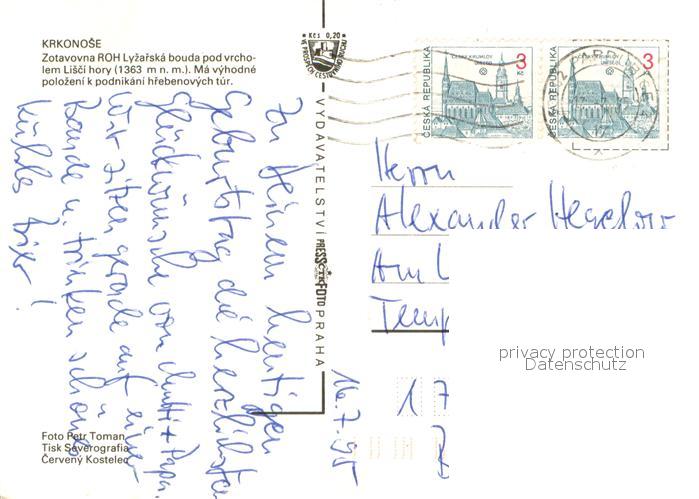 KRKONOŠE
Zotavovna ROH Lyžařská bouda pod vrcho-
lem Liščí hory (1363 m n. m.). Má výhodné
položení k podnikání hřebenových túr.
Kčs 0,20
VE PROSPĚCH CESTOVNÍHO RUCHU
VYDAVATELSTVÍ PRESSFOTO PRAHA
ČESKÁ REPUBLIKA
ČESKÝ KRUMLOV
3
Kč
ČESKÁ REPUBLIKA
ČESKÝ KRUMLOV
3
Zu Deinem heutigen
Geburtstag die herzlichsten
Glückwünsche von Mutti + Papa.
Wir sitzen gerade auf einer
Baude u. trinken schönes
kühles
16.7.95
Herrn
Alexander Hegelow
Am L
Temp
17
privacy protection
Datenschutz
Foto Petr Toman
Tisk Severografia
Červený Kostelec